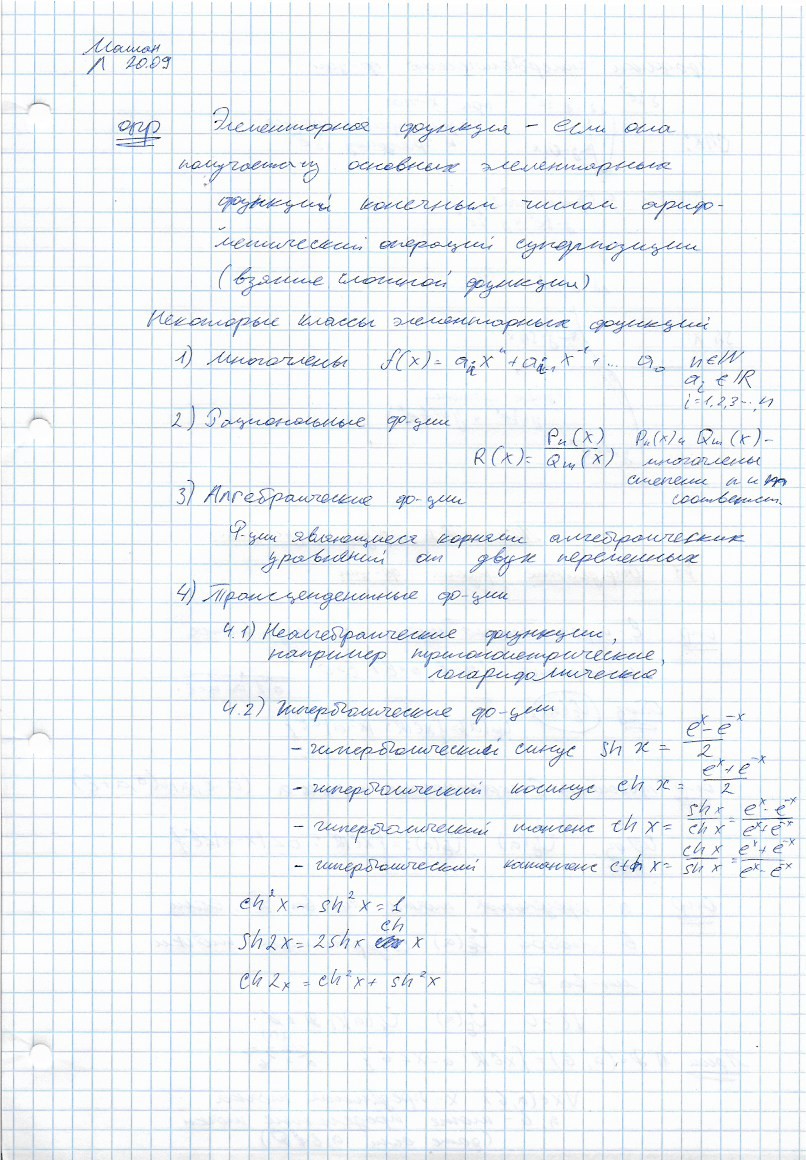 Матан
Л 20.09
опр Элементарная функция - если она
получается из основных элементарных
функций конечным числом ариф-
метический операций суперпозиции
(взятие сложной функции)
Некоторые классы элементарных функций
1) Многочлены f(x) = aₙxⁿ + aₙ₋₁xⁿ⁻¹ + ... a₀ n∈ℕ
aᵢ ∈ ℝ
i=1,2,3...n
2) Рациональные ф-ции
R(x) = Pₙ(x)/Qₘ(x) Pₙ(x) и Qₘ(x) -
многочлены
степени n и m
соответст.
3) Алгебраические ф-ции
Ф-ции являющиеся корнями алгебраических
уравнений от двух переменных
4) Трансцендентные ф-ции
4.1) Неалгебраические функции,
например тригонометрические,
логарифмические
4.2) Гиперболические ф-ции
- гиперболический синус sh x = (eˣ - e⁻ˣ)/2
- гиперболический косинус ch x = (eˣ + e⁻ˣ)/2
- гиперболический тангенс th x = sh x/ch x = (eˣ - e⁻ˣ)/(eˣ + e⁻ˣ)
- гиперболический котангенс cth x = ch x/sh x = (eˣ + e⁻ˣ)/(eˣ - e⁻ˣ)
ch²x - sh²x = 1
sh2x = 2shx ch x
ch2x = ch²x + sh²x